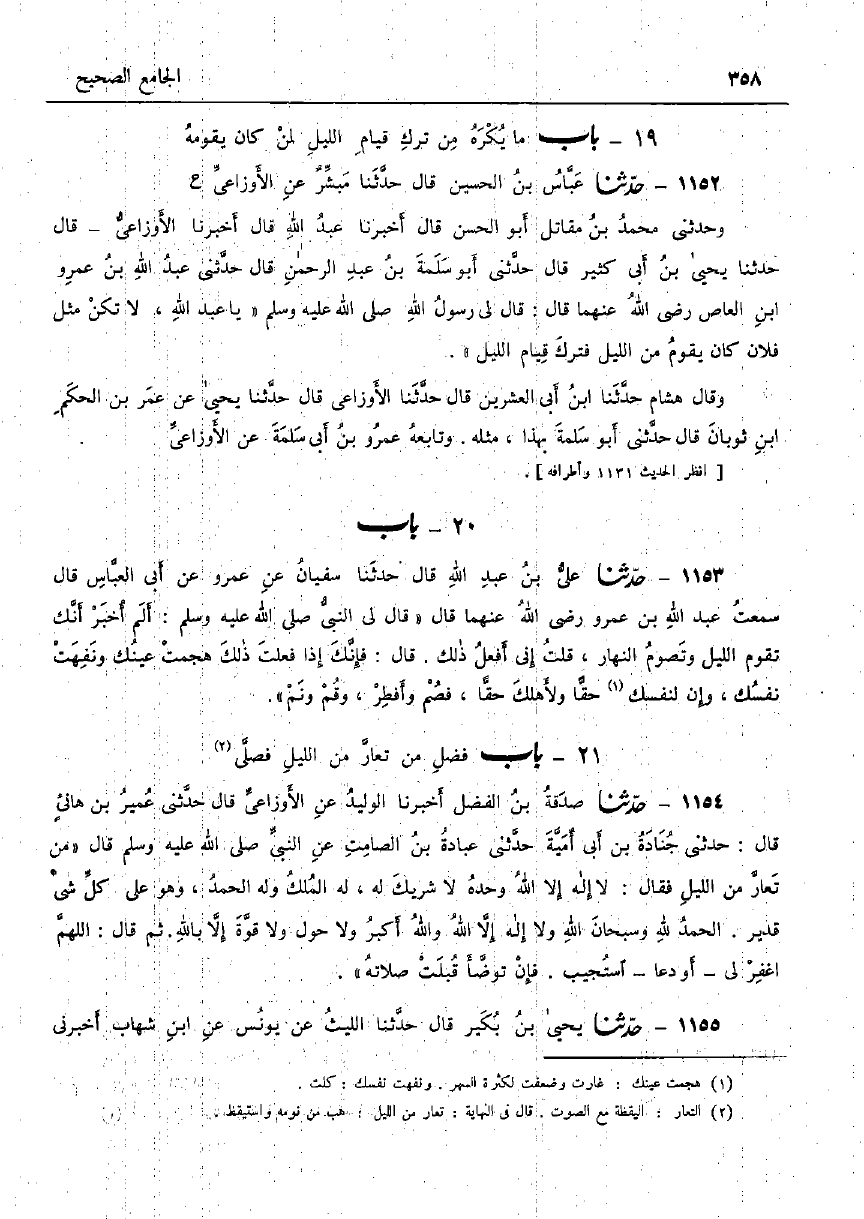 ٣٥٨ الجامع الصحيح
١٩ - باب ما يُكْرَهُ مِن تركِ قيامِ الليلِ لمنْ كان يقومهُ
١١٥٢ - حدّثنا عَبَّاسُ بنُ الحسين قال حدَّثَنا مَبشِّرٌ عنِ الأَوزاعىِّ ح
وحدثنى محمدُ بنُ مقاتل أبو الحسن قال أخبرنا عبدُ اللهِ قال أخبرنا الأَوزاعىُّ - قال
حدثنا يحيىٰ بنُ أبى كثير قال حدَّثنى أبو سَلَمةَ بنُ عبدِ الرحمٰنِ قال حدَّثنى عبدُ اللهِ بنُ عمرِو
ابنِ العاص رضى اللهُ عنهما قال : قال لى رسولُ اللهِ صلى الله عليه وسلم « يا عبد اللهِ ، لا تكنْ مثل
فلان كان يقومُ من الليل فتركَ قِيام الليل » .
وقال هشام حدَّثَنا ابنُ أبى العشرين قال حدَّثَنا الأَوزاعى قال حدَّثَنا يحيىٰ عن عمَر بن الحكَمِ
ابنِ ثوبانَ قال حدَّثنى أبو سَلمةَ بهذا ، مثله . وتابعهُ عمرُو بنُ أبى سَلمَةَ عن الأَوزاعىِّ .
[ انظر الحديث ١١٣١ وأطرافه ] .
٢٠ - باب
١١٥٣ - حدّثنا علىُّ بنُ عبدِ اللهِ قال حدثَنا سفيانُ عنِ عمرو عن أبى العبَّاسِ قال
سمعتُ عبد اللهِ بن عمرو رضى اللهُ عنهما قال « قال لى النبىُّ صلى الله عليه وسلم : أَلم أُخبَرْ أنَّك
تقوم الليل وتَصومُ النهار ، قلتُ إنى أَفعلُ ذٰلك . قال : فإنَّكَ إذا فعلتَ ذٰلكَ هجمتْ عينُك ونَفِهَتْ
نفسُك ، وإن لنفسك (١) حقًّا ولأَهلكَ حقًّا ، فصُمْ وأَفطِرْ ، وقُمْ ونَمْ ».
٢١ - باب فضلِ من تعارَّ من الليلِ فصلَّى (٢)
١١٥٤ - حدّثنا صدَقةُ بنُ الفضل أَخبرنا الوليدُ عنِ الأَوزاعىِّ قال حدَّثنى عُميرُ بن هانئٍ
قال : حدثنى جُنَادَةُ بن أبى أُمَيَّةَ حدَّثنى عبادةُ بنُ الصامِتِ عنِ النبىِّ صلى الله عليه وسلم قال «من
تَعارَّ من الليلِ فقال : لا إلٰه إلا اللهُ وحدهُ لا شريكَ له ، له المُلكُ وله الحمدُ ، وهو على كلِّ شىْ
قدير . الحمدُ للهِ وسبحانَ اللهِ ولا إلٰه إلَّا اللهُ واللهُ أكبرُ ولا حول ولا قوَّةَ إلَّا باللهِ. ثم قال : اللهمَّ
اغفِرْ لى - أو دعا - استُجيب . فإنْ توضَّأَ قُبلَتْ صلاتهُ » .
١١٥٥ - حدّثنا يحيىٰ بنُ بُكَير قال حدَّثنا الليثُ عن يونُس عنِ ابنِ شهاب أخبرنى
(١) هجمت عينك : غارت وضعفت لكثرة السهر . ونفهت نفسك : كلت .
(٢) التعار : اليقظة مع الصوت . قال فى النهاية : تعار من الليل : هب من نومه واستيقظ .